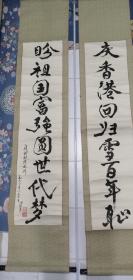 庆香港回归雪百年耻
盼祖国富强圆世代梦